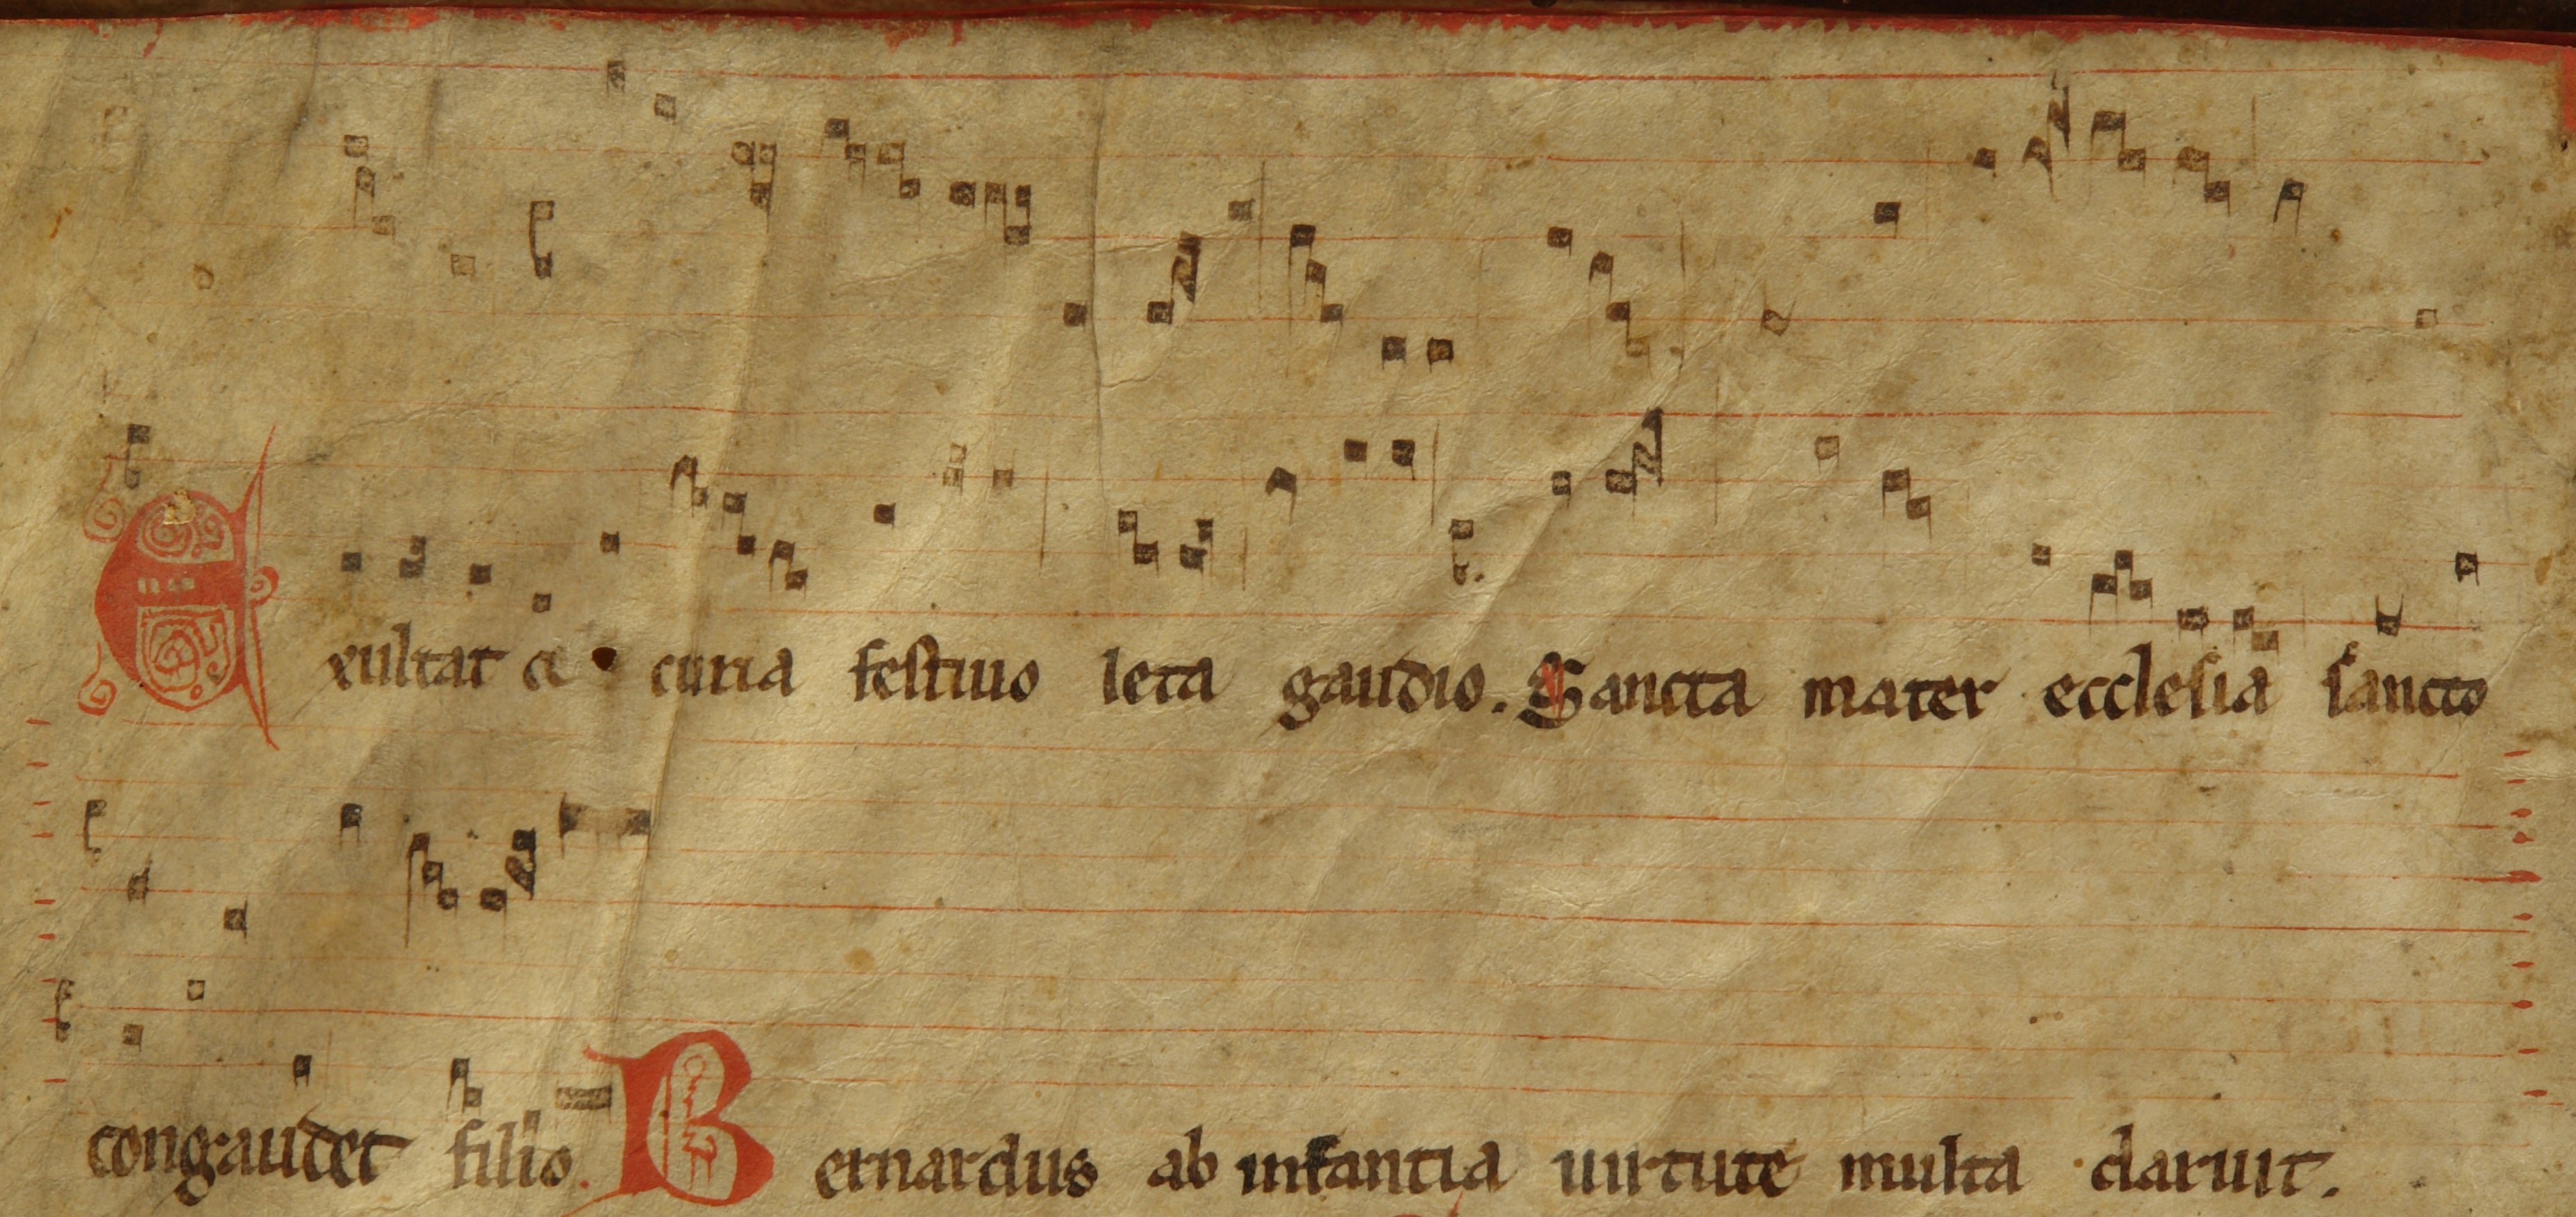 Exultat ci curia festiuo leta gaudio. Sancta mater ecclesia sancto
congaudet filio. Bernardus ab infantia uirtute multa claruit.